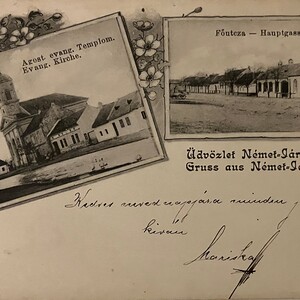 Agost evang. Templom.
Evang. Kirche.
Főutcza — Hauptgass
Üdvözlet Német-Jár
Gruss aus Német-Já
Kedves nevednapjára minden
kíván
Mariska